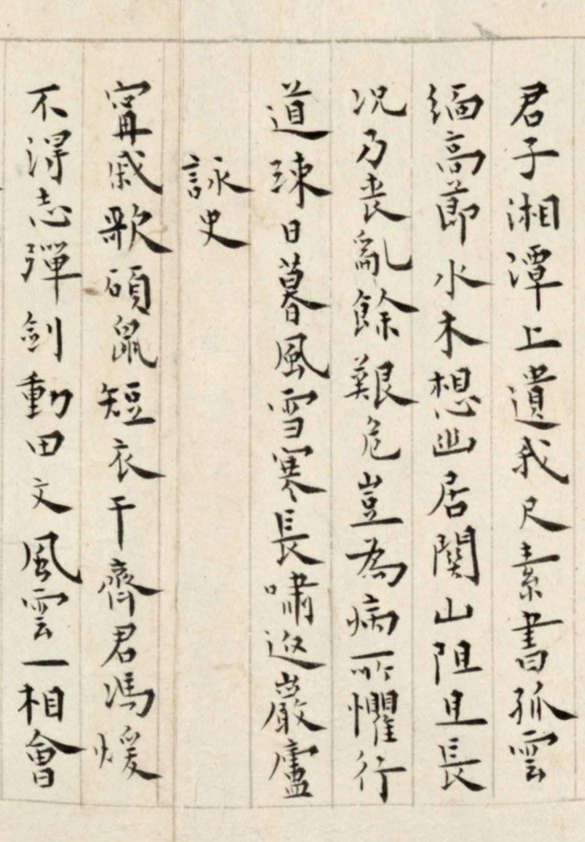 君子湘潭上遺我尺素書孤雲
緬高節水木想幽居關山阻且長
況乃喪亂餘艱危豈為病所懼行
道疎日暮風雪寒長嘯返巖廬
詠史
甯戚歌碩鼠短衣干齊君馮煖
不得志彈劍動田文風雲一相會